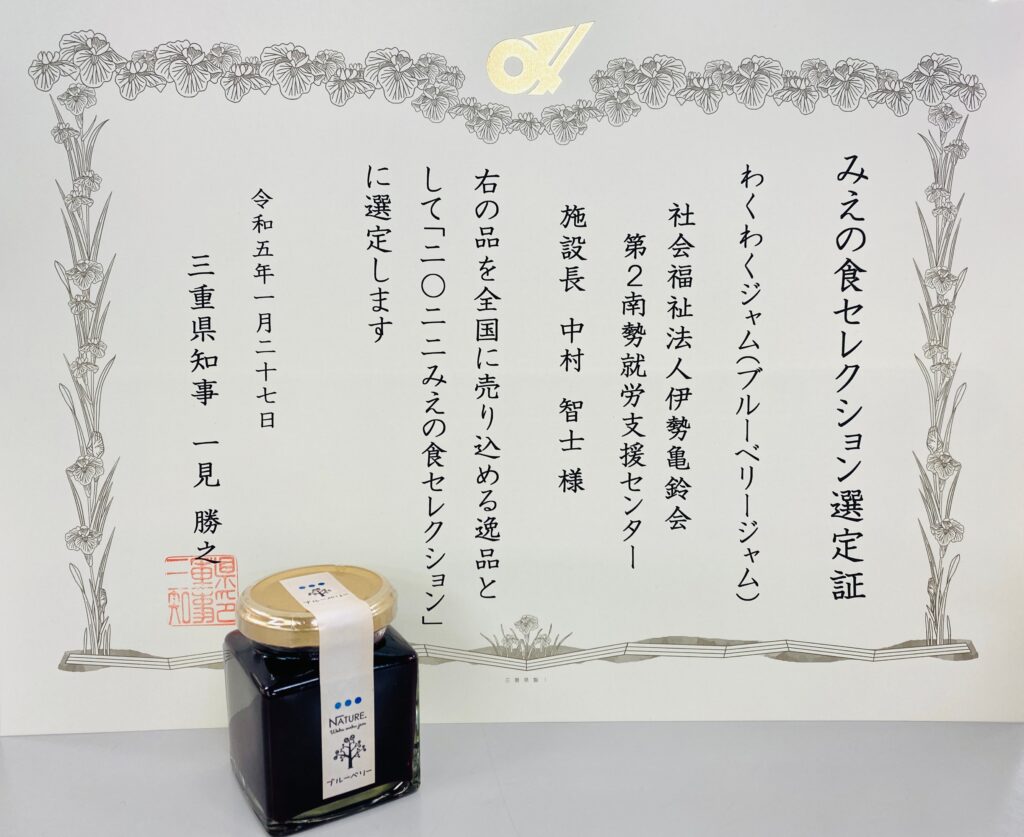 みえの食セレクション選定証
わくわくジャム(ブルーベリージャム)
社会福祉法人伊勢亀鈴会
第2南勢就労支援センター
施設長 中村 智士 様
右の品を全国に売り込める逸品と
して「二〇二二みえの食セレクション」
に選定します
令和五年一月二十七日
三重県知事 一見 勝之
ブルーベリー
NATURE.
Waku waku jam
ブルーベリー